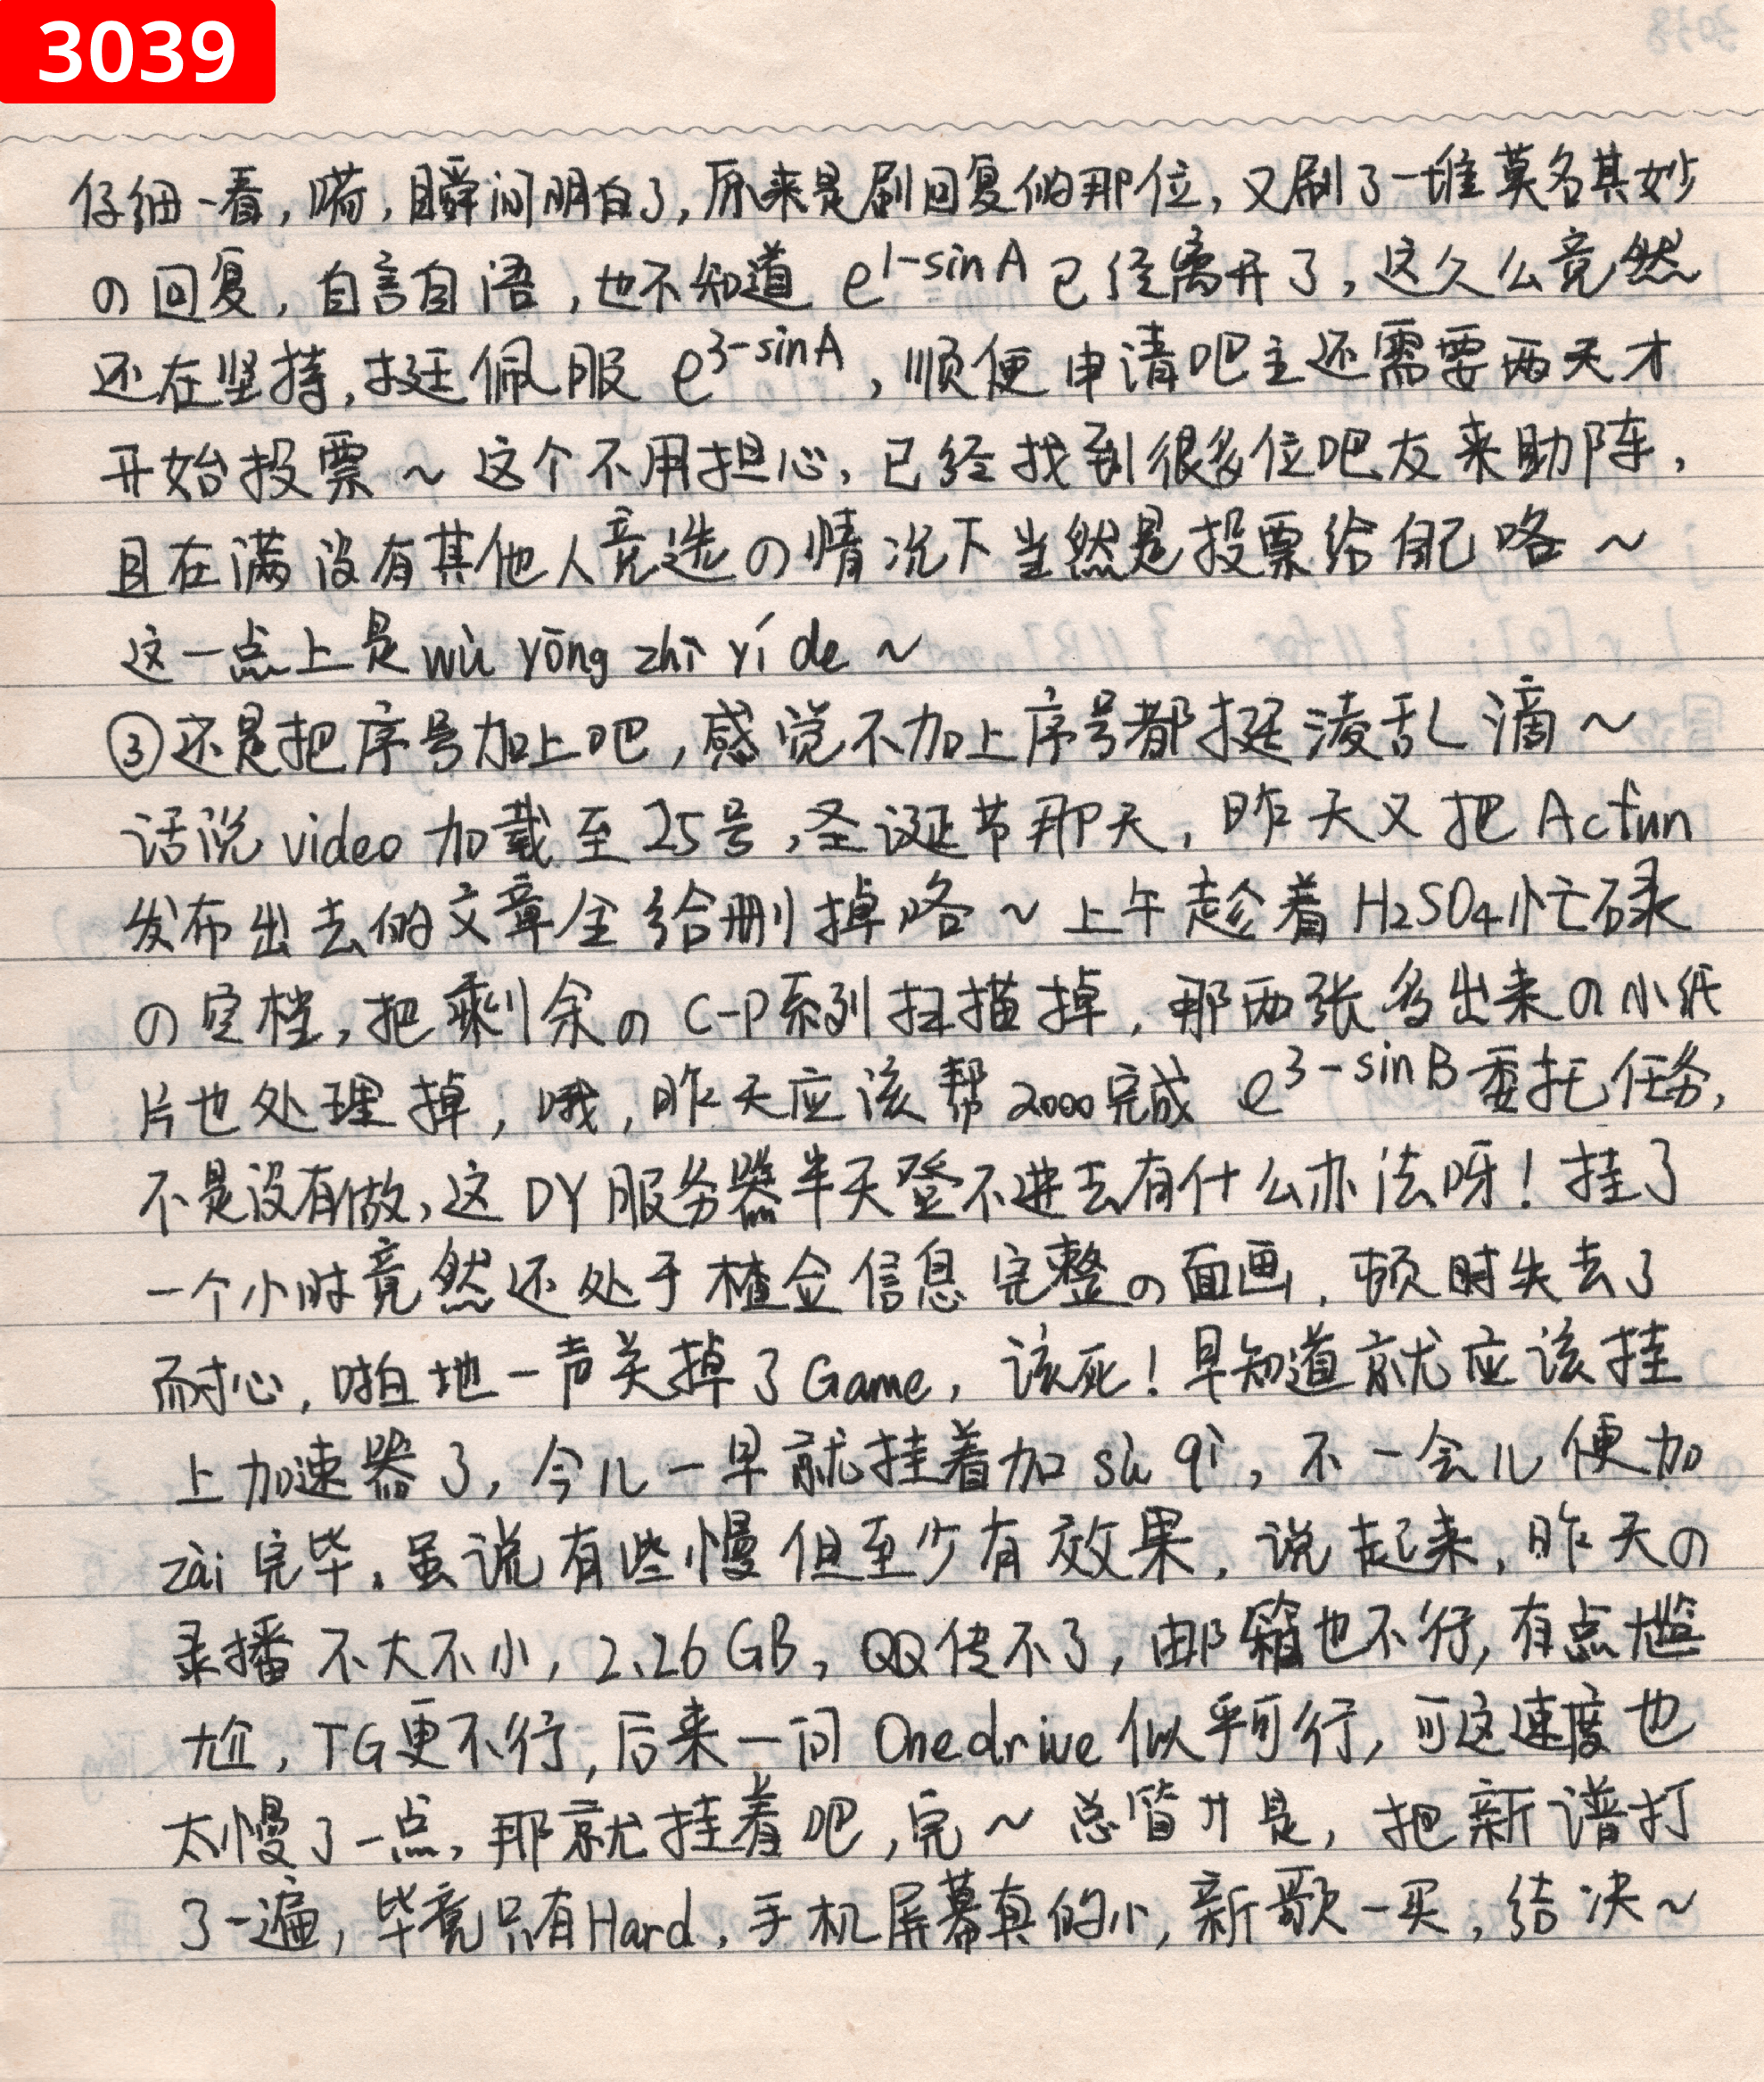 3039
仔细一看,嗬,瞬间明白了,原来是刷回复的那位,又刷了一堆莫名其妙
の回复,自言自语,也不知道 e^1-sinA 已经离开了,这久么竟然
还在坚持,挺佩服 e^3-sinA,顺便申请吧主还需要两天才
开始投票～这个不用担心,已经找到很多位吧友来助阵,
且在满没有其他人竞选の情况下当然是投票给自己咯～
这一点上是wù yōng zhì yí de～
③还是把序号加上吧,感觉不加上序号都挺凌乱滴～
话说video加载至25号,圣诞节那天,昨天又把Acfun
发布出去的文章全给删掉咯～上午趁着H₂SO₄忙碌
の空档,把剩余のC-P系列扫描掉,那两张多出来の小纸
片也处理掉,哦,昨天应该帮2000完成 e^3-sinB委托任务,
不是没有做,这DY服务器半天登不进去有什么办法呀!挂了
一个小时竟然还处于楂佥信息完整の面画,顿时失去了
耐心,啪地一声关掉了Game,该死!早知道就应该挂
上加速器了,今儿一早就挂着加sù qì,不一会儿便加
zài完毕。虽说有些慢但至少有效果,说起来,昨天の
录播不大不小,2.26GB,QQ传不了,邮箱也不行,有点尴
尬,TG更不行,后来一问Onedrive似乎可行,可这速度也
太慢了一点,那就挂着吧,完～总督廾是,把新谱打
了一遍,毕竟只有Hard,手机屏幕真的小,新歌一买,结决～
3038